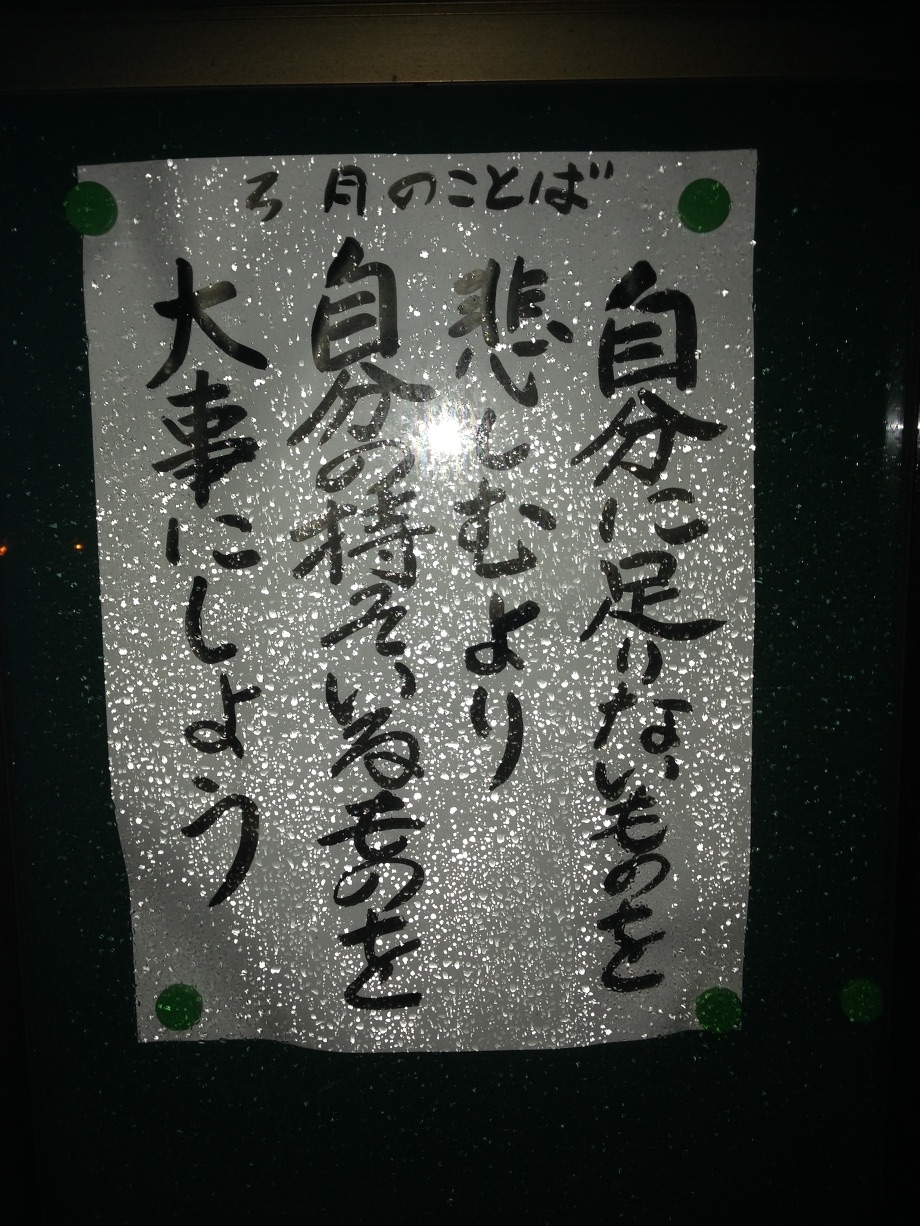 3月のことば
自分に足りないものを
悲しむより
自分の持っているものを
大事にしよう